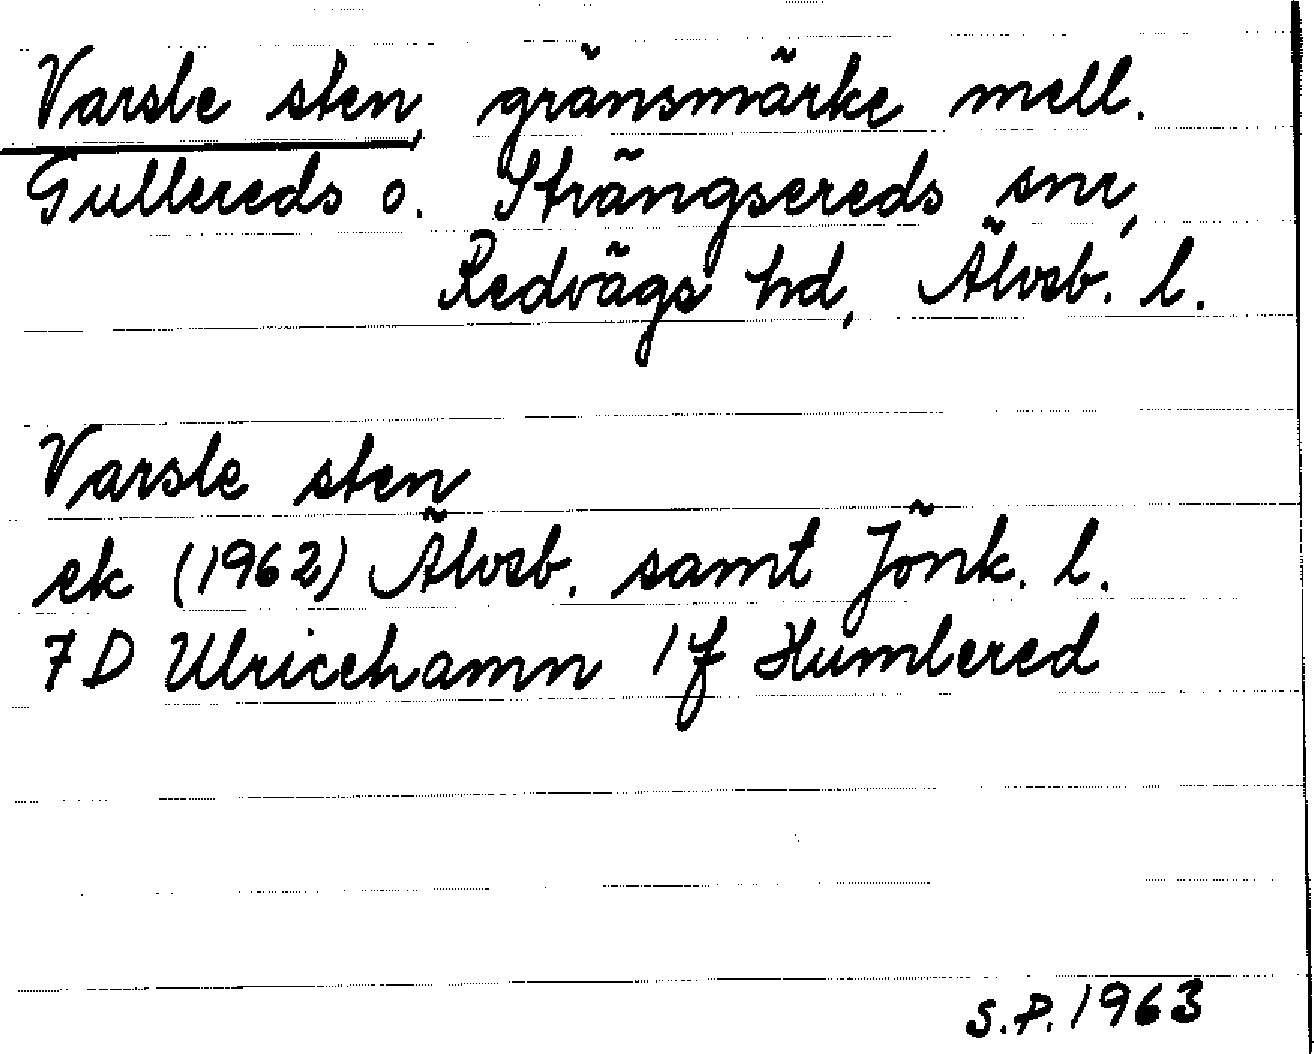 Varsle sten, gränsmärke mell.
Gullereds o. Strängsereds snr,
Redvägs hd, Älvsb. l.
Varsle sten
ek (1962) Älvsb. samt Jönk. l.
7D Ulricehamn 1f Humlered
S.P. 1963